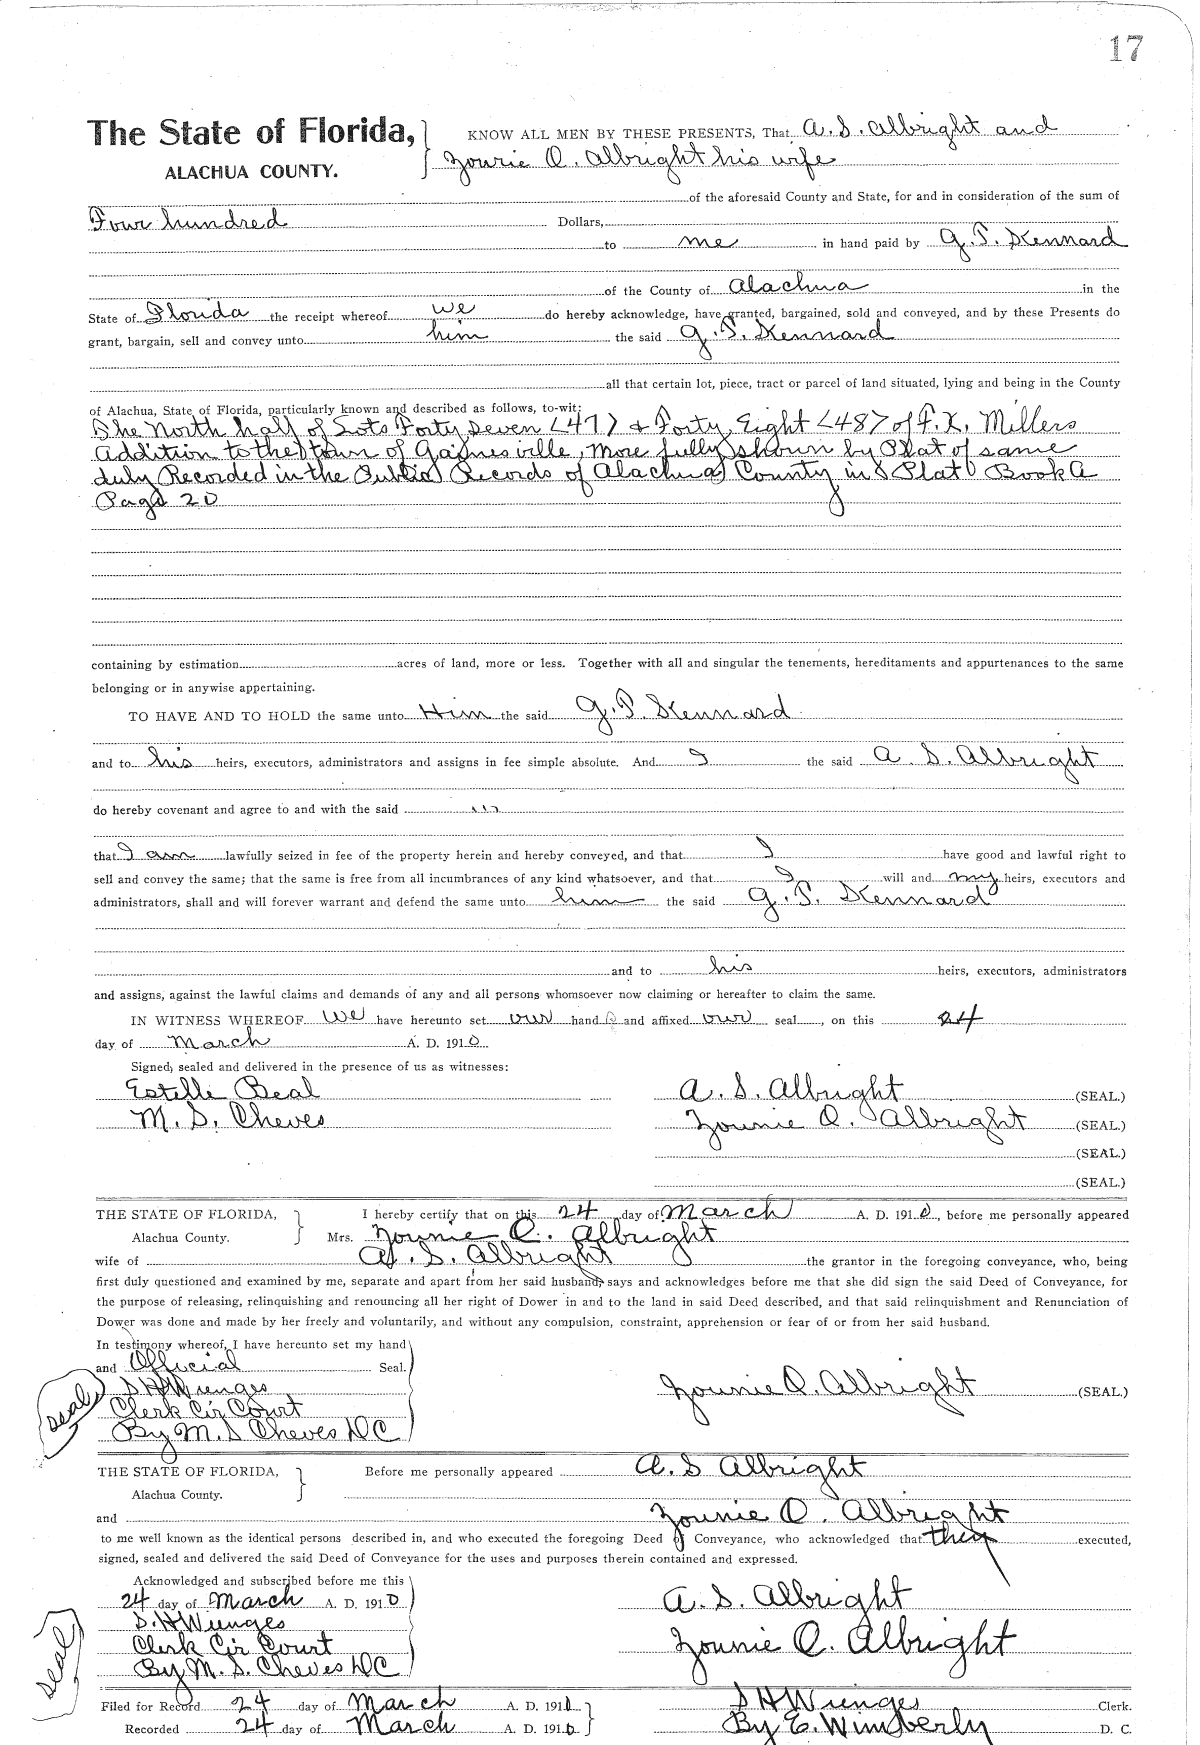 17
The State of Florida,
ALACHUA COUNTY.
KNOW ALL MEN BY THESE PRESENTS, That A. S. Albright and
Zounie O. Albright his wife
of the aforesaid County and State, for and in consideration of the sum of
Four hundred Dollars,
to me in hand paid by G. P. Kennard
of the County of Alachua in the
State of Florida the receipt whereof we do hereby acknowledge, have granted, bargained, sold and conveyed, and by these Presents do
grant, bargain, sell and convey unto him the said G. P. Kennard
all that certain lot, piece, tract or parcel of land situated, lying and being in the County
of Alachua, State of Florida, particularly known and described as follows, to-wit:
The North half of Lots Forty Seven (47) & Forty Eight (48) of F. X. Millers
Addition to the town of Gainesville, more fully shown by Plat of same
duly Recorded in the Public Records of Alachua County in Plat Book A
Page 20
containing by estimation acres of land, more or less. Together with all and singular the tenements, hereditaments and appurtenances to the same
belonging or in anywise appertaining.
TO HAVE AND TO HOLD the same unto Him the said G. P. Kennard
and to his heirs, executors, administrators and assigns in fee simple absolute. And I the said A. S. Albright
do hereby covenant and agree to and with the said
that I am lawfully seized in fee of the property herein and hereby conveyed, and that I have good and lawful right to
sell and convey the same; that the same is free from all incumbrances of any kind whatsoever, and that I will and my heirs, executors and
administrators, shall and will forever warrant and defend the same unto him the said G. P. Kennard
and to his heirs, executors, administrators
and assigns, against the lawful claims and demands of any and all persons whomsoever now claiming or hereafter to claim the same.
IN WITNESS WHEREOF we have hereunto set our hands and affixed our seal, on this 24
day of March A. D. 1910
Signed, sealed and delivered in the presence of us as witnesses:
Estelle Beal A. S. Albright (SEAL.)
M. S. Cheves Zounie O. Albright (SEAL.)
(SEAL.)
(SEAL.)
THE STATE OF FLORIDA,
Alachua County.
I hereby certify that on this 24 day of March A. D. 1910, before me personally appeared
Mrs. Zounie O. Albright
wife of A. S. Albright the grantor in the foregoing conveyance, who, being
first duly questioned and examined by me, separate and apart from her said husband, says and acknowledges before me that she did sign the said Deed of Conveyance, for
the purpose of releasing, relinquishing and renouncing all her right of Dower in and to the land in said Deed described, and that said relinquishment and Renunciation of
Dower was done and made by her freely and voluntarily, and without any compulsion, constraint, apprehension or fear of or from her said husband.
In testimony whereof, I have hereunto set my hand
and Official Seal.
Seal
S H Wienges
Clerk Cir Court
By M. S Cheves DC
Zounie O. Albright (SEAL.)
THE STATE OF FLORIDA,
Alachua County.
Before me personally appeared A. S Albright
and Zounie O. Albright
to me well known as the identical persons described in, and who executed the foregoing Deed of Conveyance, who acknowledged that they executed,
signed, sealed and delivered the said Deed of Conveyance for the uses and purposes therein contained and expressed.
Acknowledged and subscribed before me this
24 day of March A. D. 1910
S. H Wienges
Clerk Cir Court
By M. S. Cheves DC
Seal
A. S. Albright
Zounie O. Albright
Filed for Record 24 day of March A. D. 1910
Recorded 24 day of March A. D. 1910
S H Wienges Clerk.
By E. Wimberly D. C.